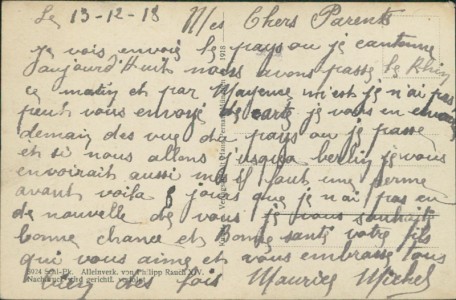 Le 13-12-18 Mes Chers Parents
je vois envoié le pays ou je cantonne
aujourd'Huit nous avons passé le Rhin
ce matin et par Mayense m'est je n'ai pas
peut vous envoyé de carte je vous en
demain des vue du pays ou je passe
et si nous allons jusqua berlin je vous
envoirait aussi mes il faut une perme
avant voila 8 jours que je n'ai pas eu
de nouvelle de vous je vous souhaite
bonne chance et Bonne santé votre fils
qui vous aime et vous embrasse tous
des fois Maurice Michel
2024 Schl-Pk. Alleinverk. von Philipp Rauch XIV.
Nachdruck wird gerichtl. verfolgt
1918